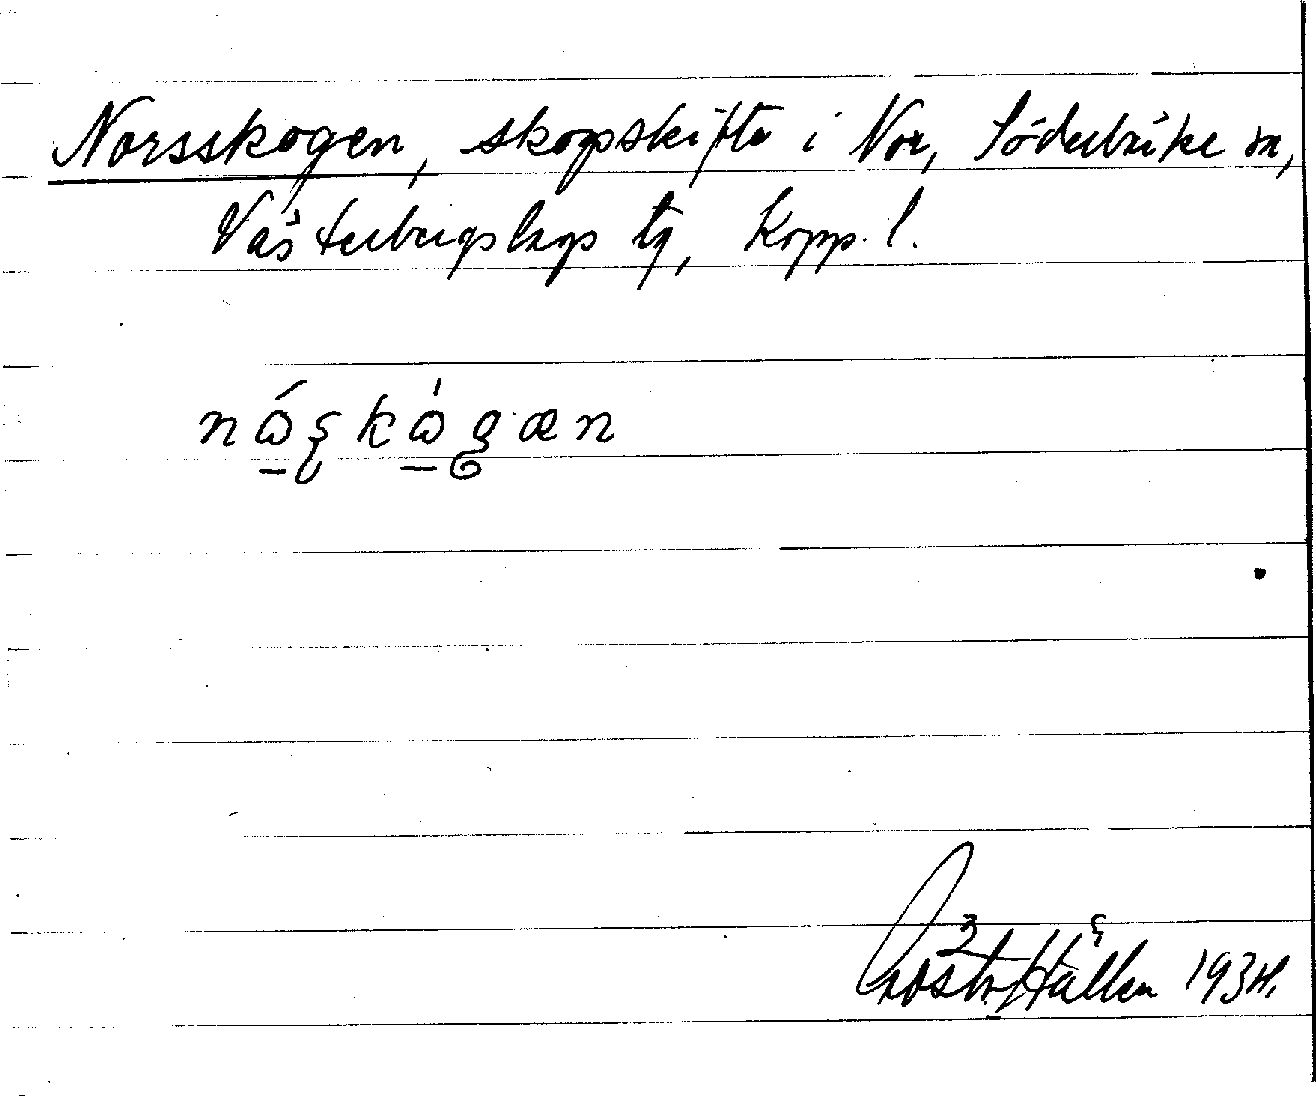 Norsskogen, skogsskifte i Nor, Söderbärke sn,
Västerbergslags tg, Kopp. l.
nώşkὼgæn
Gösta Hallén 1934.